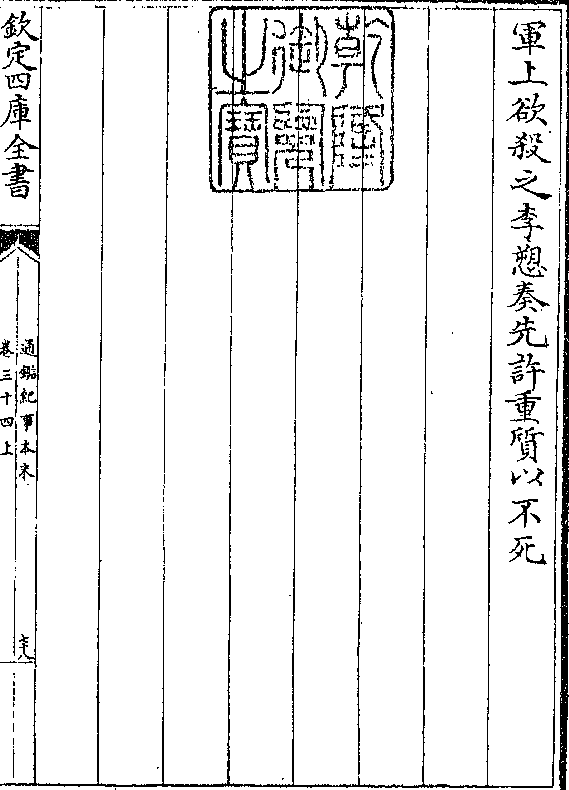 軍上欲殺之李愬奏先許重質以不死
乾隆
御覽
之寶
欽定四庫全書
通鑑紀事本末
卷三十四上